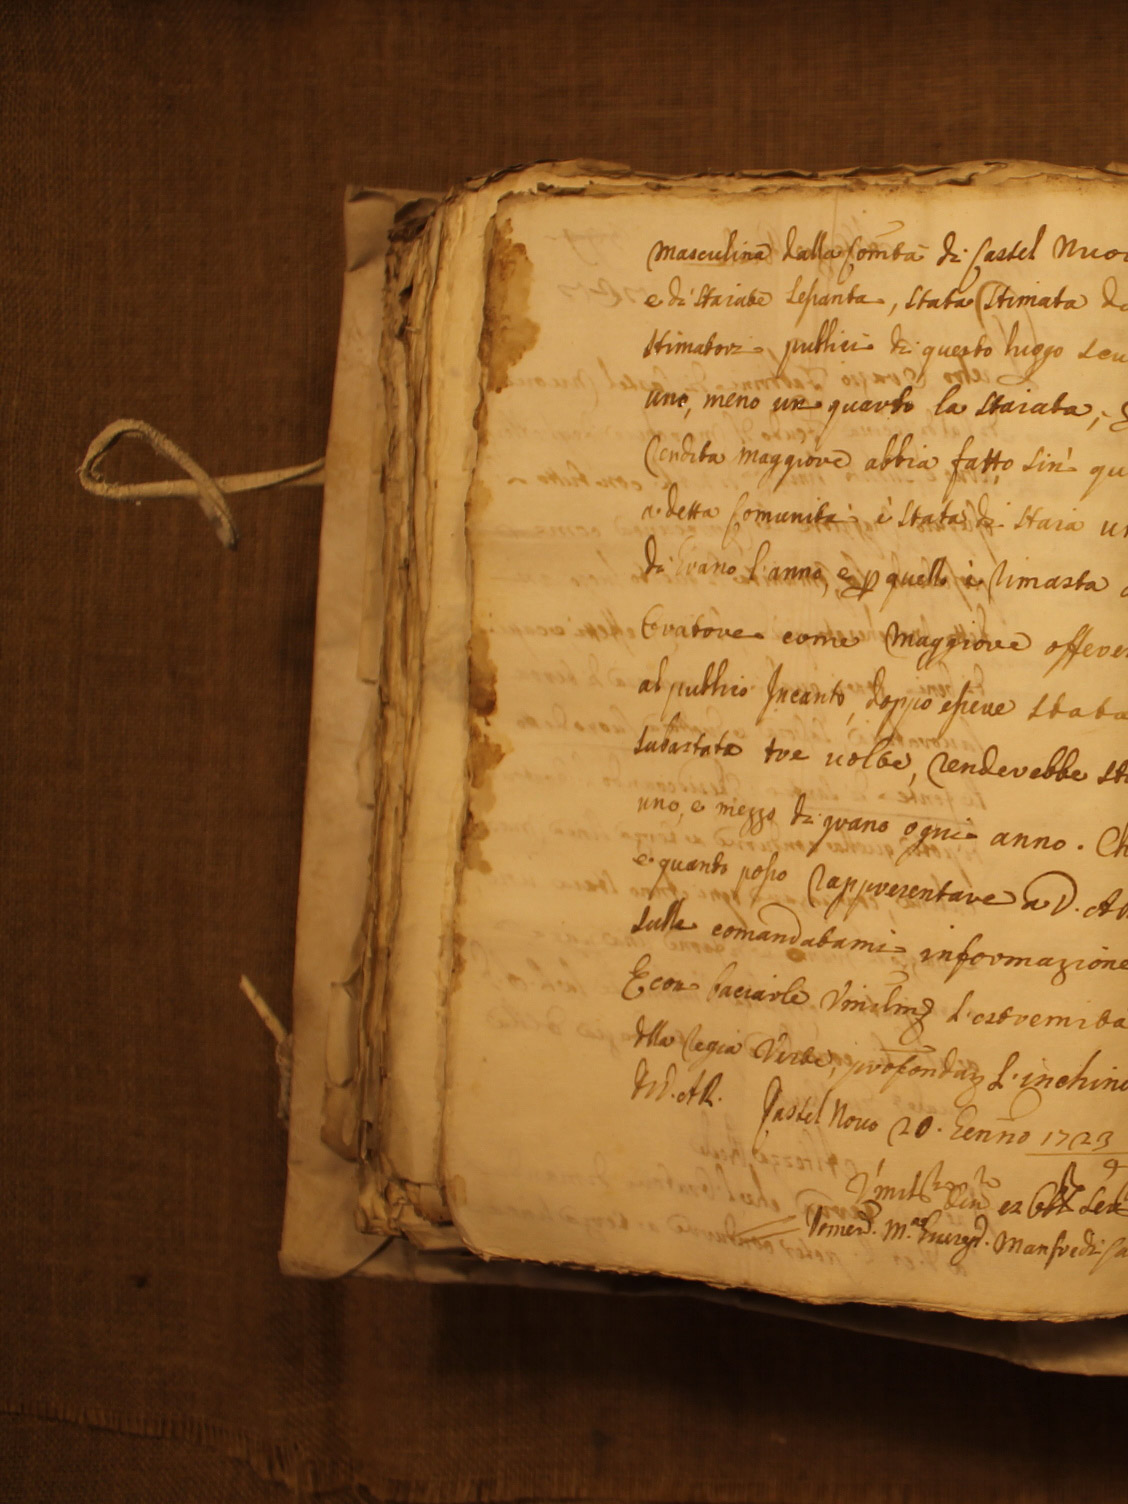 Masculina dalla Com̃tà di Castel Nuo
e di staiate sessanta, stata stimata da
stimatori publici di questo luogo scu
uno, meno un quarto la staiata, e
rendita maggiore abbia fatto sin' qu
a detta Comunità è stata di staia un
di grano l'anno, e p quello è rimasta
Oratore come maggiore offere
al publico Incanto, doppo essere stata
subastata tre volte, renderebbe sta
uno, e mezzo di grano ogni anno. Ch
e quanto posso rappresentare a V. AR
sulle comandatami informazione
E con baciarle Umilm̃ l'estremità
dlla Regia Veste, profondam̃ l'inchino
D V. AR. Castel Novo 20. Genn̄o 1723
Umil Ser
Domen. M.ª Manfredi Ca